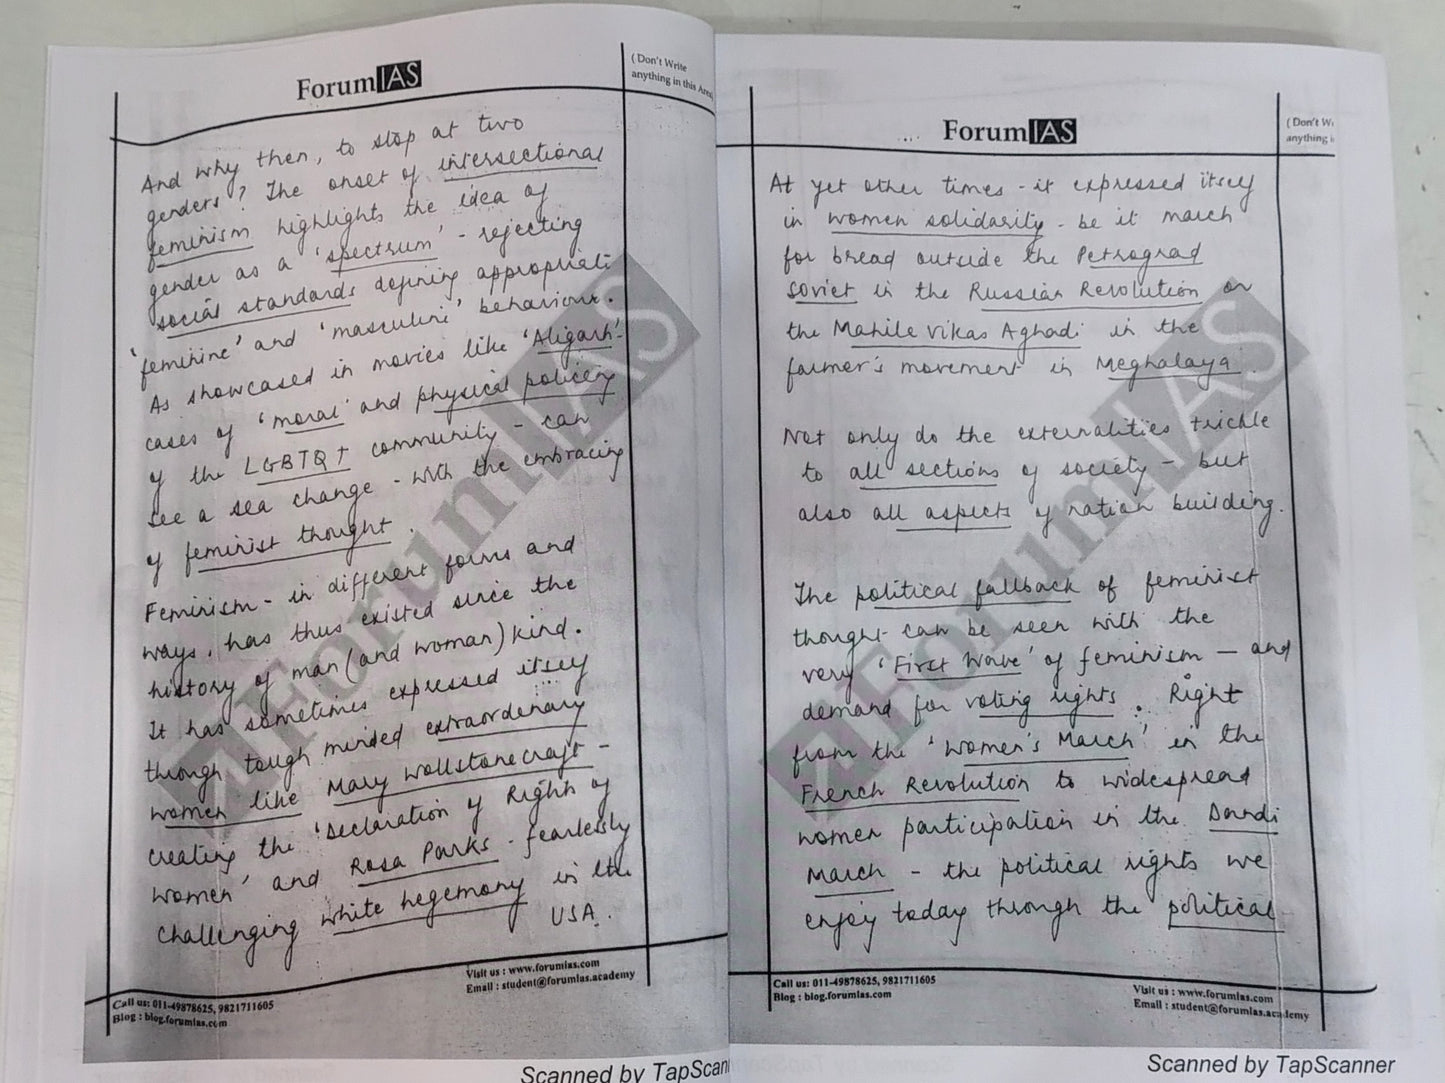 ForumIAS
( Don't Write
anything in this Area)
And why then, to stop at two
genders? The onset of intersectional
feminism highlights the idea of
gender as a 'spectrum' - rejecting
social standards defining appropriate
'feminine' and 'masculine' behaviour.
As showcased in movies like 'Aligarh' -
cases of 'moral' and physical policing
of the LGBTQ+ community - can
see a sea change - with the embracing
of feminist thought.
Feminism - in different forms and
ways, has thus existed since the
history of man (and woman) kind.
It has sometimes expressed itself
through tough minded extraordenary
women like Mary Wollstonecraft -
creating the 'Declaration of Right of
Women' and Rosa Parks - fearlessly
challenging white hegemony in the
USA.
Visit us : www.forumias.com
Email : student@forumias.academy
Call us: 011-49878625, 9821711605
Blog : blog.forumias.com
Scanned by TapScan
ForumIAS
( Don't Wr
anything i
At yet other times - it expressed itself
in women solidarity - be it march
for bread outside the Petrograd
Soviet in the Russian Revolution or
the Mahile Vikas Aghadi in the
farmer's movement in Meghalaya.
Not only do the externalities trickle
to all sections of society - but
also all aspects of nation building.
The political fallback of feminist
thought can be seen with the
very 'First Wave' of feminism - and
demand for voting rights. Right
from the 'Women's March' in the
French Revolution to widespread
women participation in the Dandi
March - the political rights we
enjoy today through the political
Call us: 011-49878625, 9821711605
Blog : blog.forumias.com
Visit us : www.forumias.com
Email : student@forumias.academy
Scanned by TapScanner